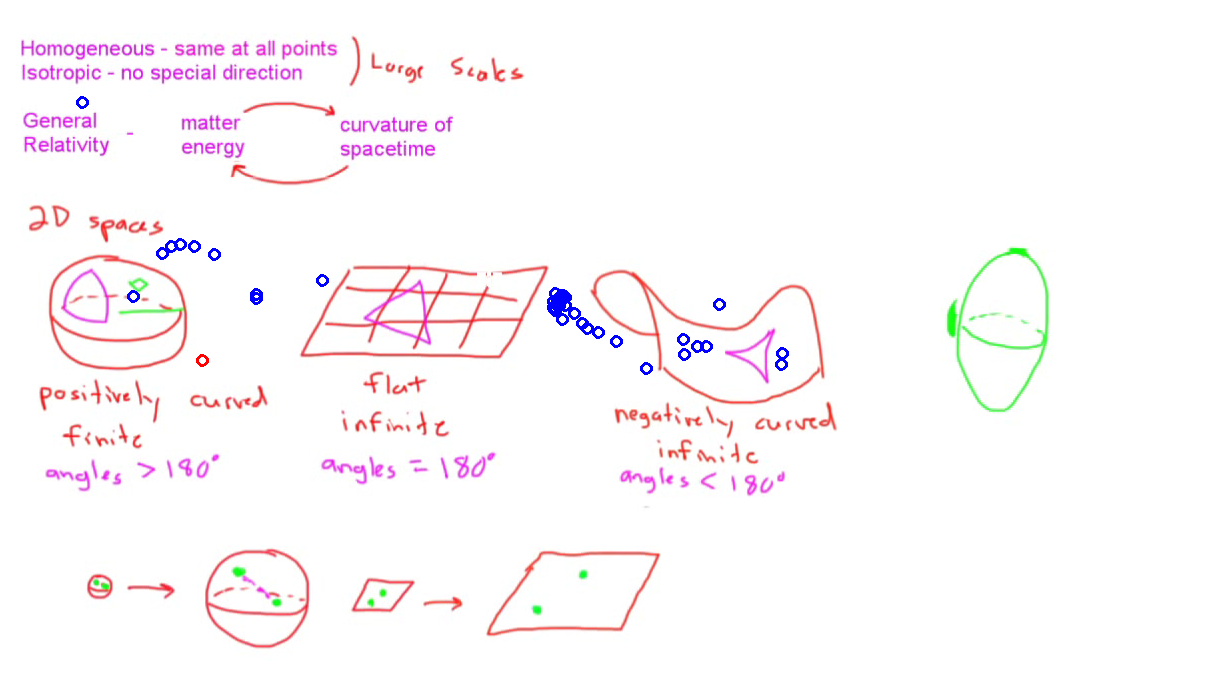 Homogeneous - same at all points
Isotropic - no special direction
) Large Scales
General
Relativity -
matter
energy
curvature of
spacetime
2D spaces
positively curved
finite
angles > 180°
flat
infinite
angles = 180°
negatively curved
infinite
angles < 180°